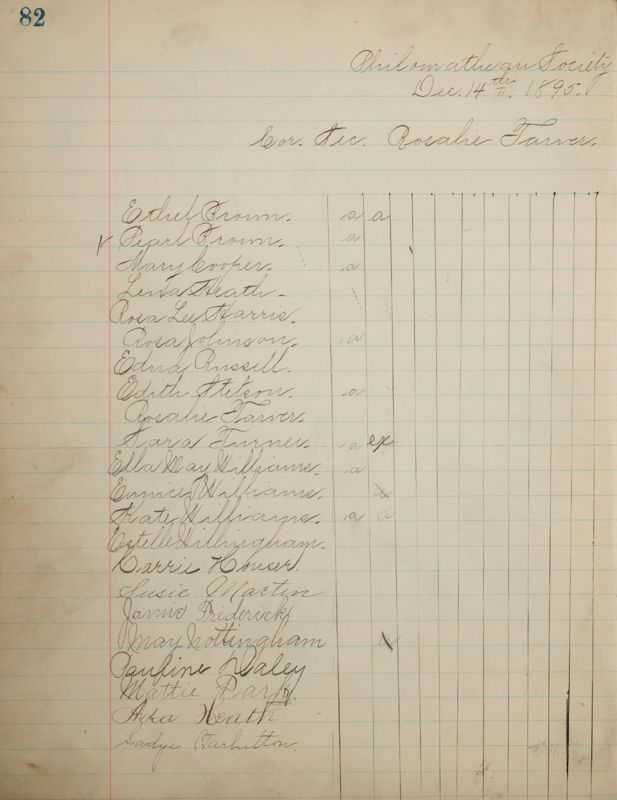 82
Philomathean Society
Dec. 14th, 1895.
Cor. Sec. Rosalie Tarver.
Ethel Brown. a a
Pearl Brown. a
Mary Cooper. a
Lena Heath.
Rosa Lee Harris.
Rosa Johnson. a
Edna Russell.
Edith Stetson. a
Rosalie Tarver.
Sara Turner. a ex
Ella May Williams. a
Eunice Williams.
Kate Williams. a a
Estelle Dillingham.
Carrie Houser.
Susie Martin
Jannie Frederick
May Nottingham
Pauline Daley
Mattie Park.
Ada Heath
Sadye Tarbutton.